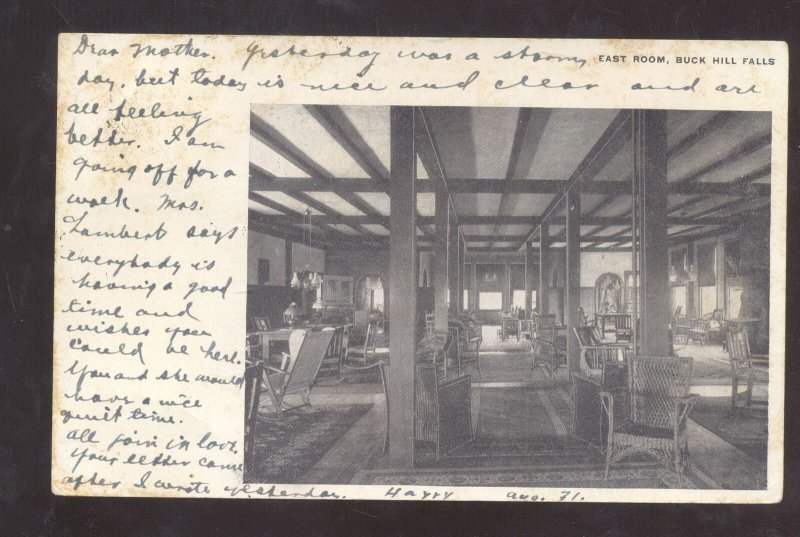 EAST ROOM, BUCK HILL FALLS
Dear Mother. Yesterday was a stormy
day, but today is nice and clear and are
all feeling
better. I am
going off for a
walk. Mrs.
Lambert says
everybody is
having a good
time and
wishes you
could be here.
You and she would
have a nice
quiet time.
all join in love.
Your letter came
after I wrote yesterday. Harry Aug. 31.